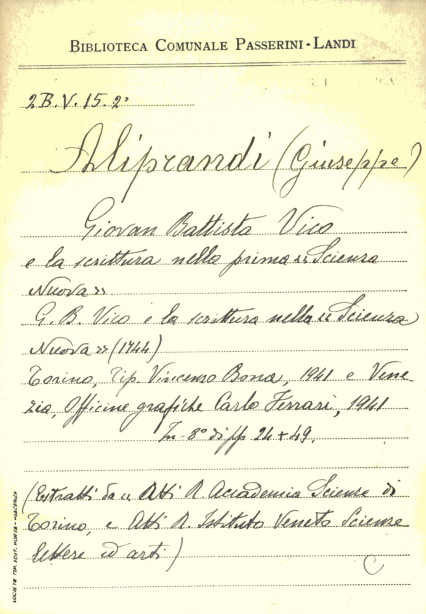 BIBLIOTECA COMUNALE PASSERINI-LANDI
2B.V.15.2°
Aliprandi (Giuseppe)
Giovan Battista Vico
e la scrittura nella prima «Scienza
Nuova»
G. B. Vico e la scrittura nella «Scienza
Nuova» (1744)
Torino, Tip. Vincenzo Bona, 1941 e Vene-
zia, Officine grafiche Carlo Ferrari, 1941
In-8° di pp 24+49.
(Estratti da «Atti R. Accademia Scienze di
Torino, e Atti R. Istituto Veneto Scienze
lettere ed arti)
C